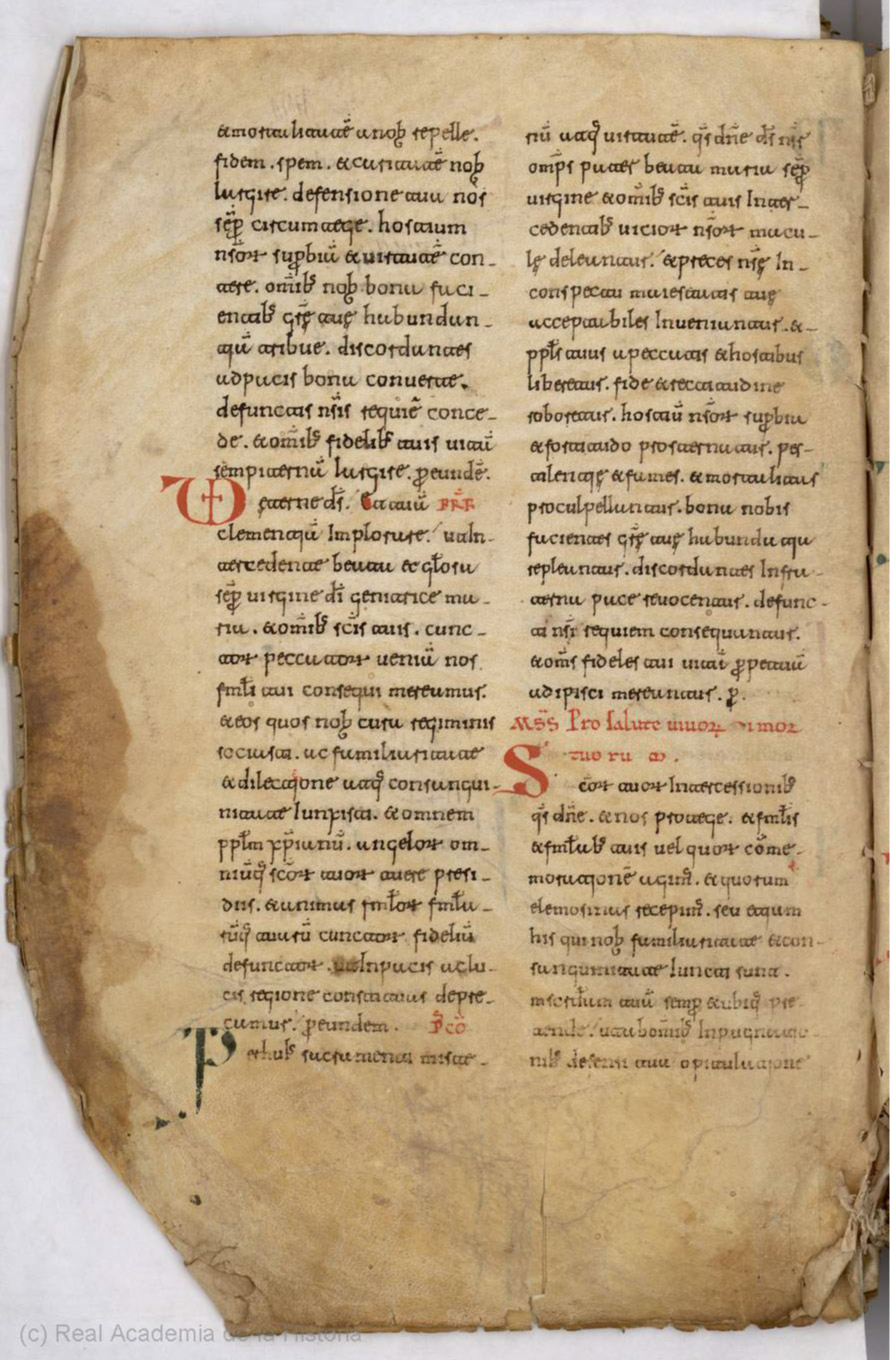 & mortalitatē a nob̄ repelle.
fidem. spem. & caritatē nob̄
largire. defensione tua nos
sēp̄ circumtege. hostium
nr̄oꝝ sup̄biā & uirtutē con_
tere. omīb; nob̄ bona faci_
entib; grȩ̄ tuȩ habundan_
tiā tribue. discordantes
ad pacis bona conuerte.
defunctis nr̄is requiē conce_
de. & omīb; fidelib; tuis uitā
sempiternā largire. p̄ eundē.
O ȩterne dr̄. Et tuā P̄R̄F̄
clementiā Implorare. ut In_
tercedente beata ac gl̄osa
sēp̄ uirgine dī genitrice ma_
ria. & omīb; sc̄is tuis. cunc_
toꝝ peccatoꝝ ueniā nos
fml̄i tui consequi mereamur.
& eos quos nob̄ cura regiminis
sociasti. ac familiaritate
& dilectione uaq̄ consangui_
nitate Iunxisti. & omnem
pplm̄ xp̄ianū. angeloꝝ om_
niūq; sc̄oꝝ tuoꝝ tuere presi_
diis. & animas fml̄oꝝ fml̄a_
rūq; tuarū cunctoꝝ fideliū
defunctoꝝ. ut In pacis ac lu_
cis regione constituas depre_
camur. p̄ eundem. P̄ CŌ
Perhab; sacramenti miste_
riū uaq̄ uirtutē. qs̄ dn̄e ds̄ nr̄
omp̄s pater beata maria sēp̄
uirgine & omīb; sc̄is tuis Inter_
cedentib; uicioꝝ nr̄oꝝ macu_
lȩ deleantur. & preces nr̄ȩ In_
conspectu maiestatis tuȩ
acceptabiles Inueniantur. & _
ppl̄s tuus a peccatis & hostibus
liberetur. fide & rectitudine
roboretur. hostiū nr̄oꝝ sup̄bia
& fortitudo prosternatur. pes_
tilentiȩ & fames. & mortalitas
proculpellantur. bona nobis
facientes grȩ̄ tuȩ habundatia
repleantur. discordantes Infra_
terna pace reuocentur. defunc_
ti nr̄i requiem consequantur.
& om̄s fideles tui uitā p̄petuā
adipisci mereantur. p̄.
MS̄S Pro salute uiuoꝝ uł mor
tuorum.
Sc̄oꝝ tuoꝝ Intercessionib;
qs̄ dn̄e. & nos protege. & fml̄is
& fml̄ab; tuis uel quoꝝ cōme_
morationē agim̄. & quorum
elemosinas recepim̄. seu etiam
his qui nob̄ familiaritate & con_
sanguinitate Iuncti sunt.
misc̄diam tuā semp̄ & ubiq; pre_
tende. ut ab omīb; Inpugnatio_
nib; defensi tua opitulatione
(c) Real Academia de la Historia